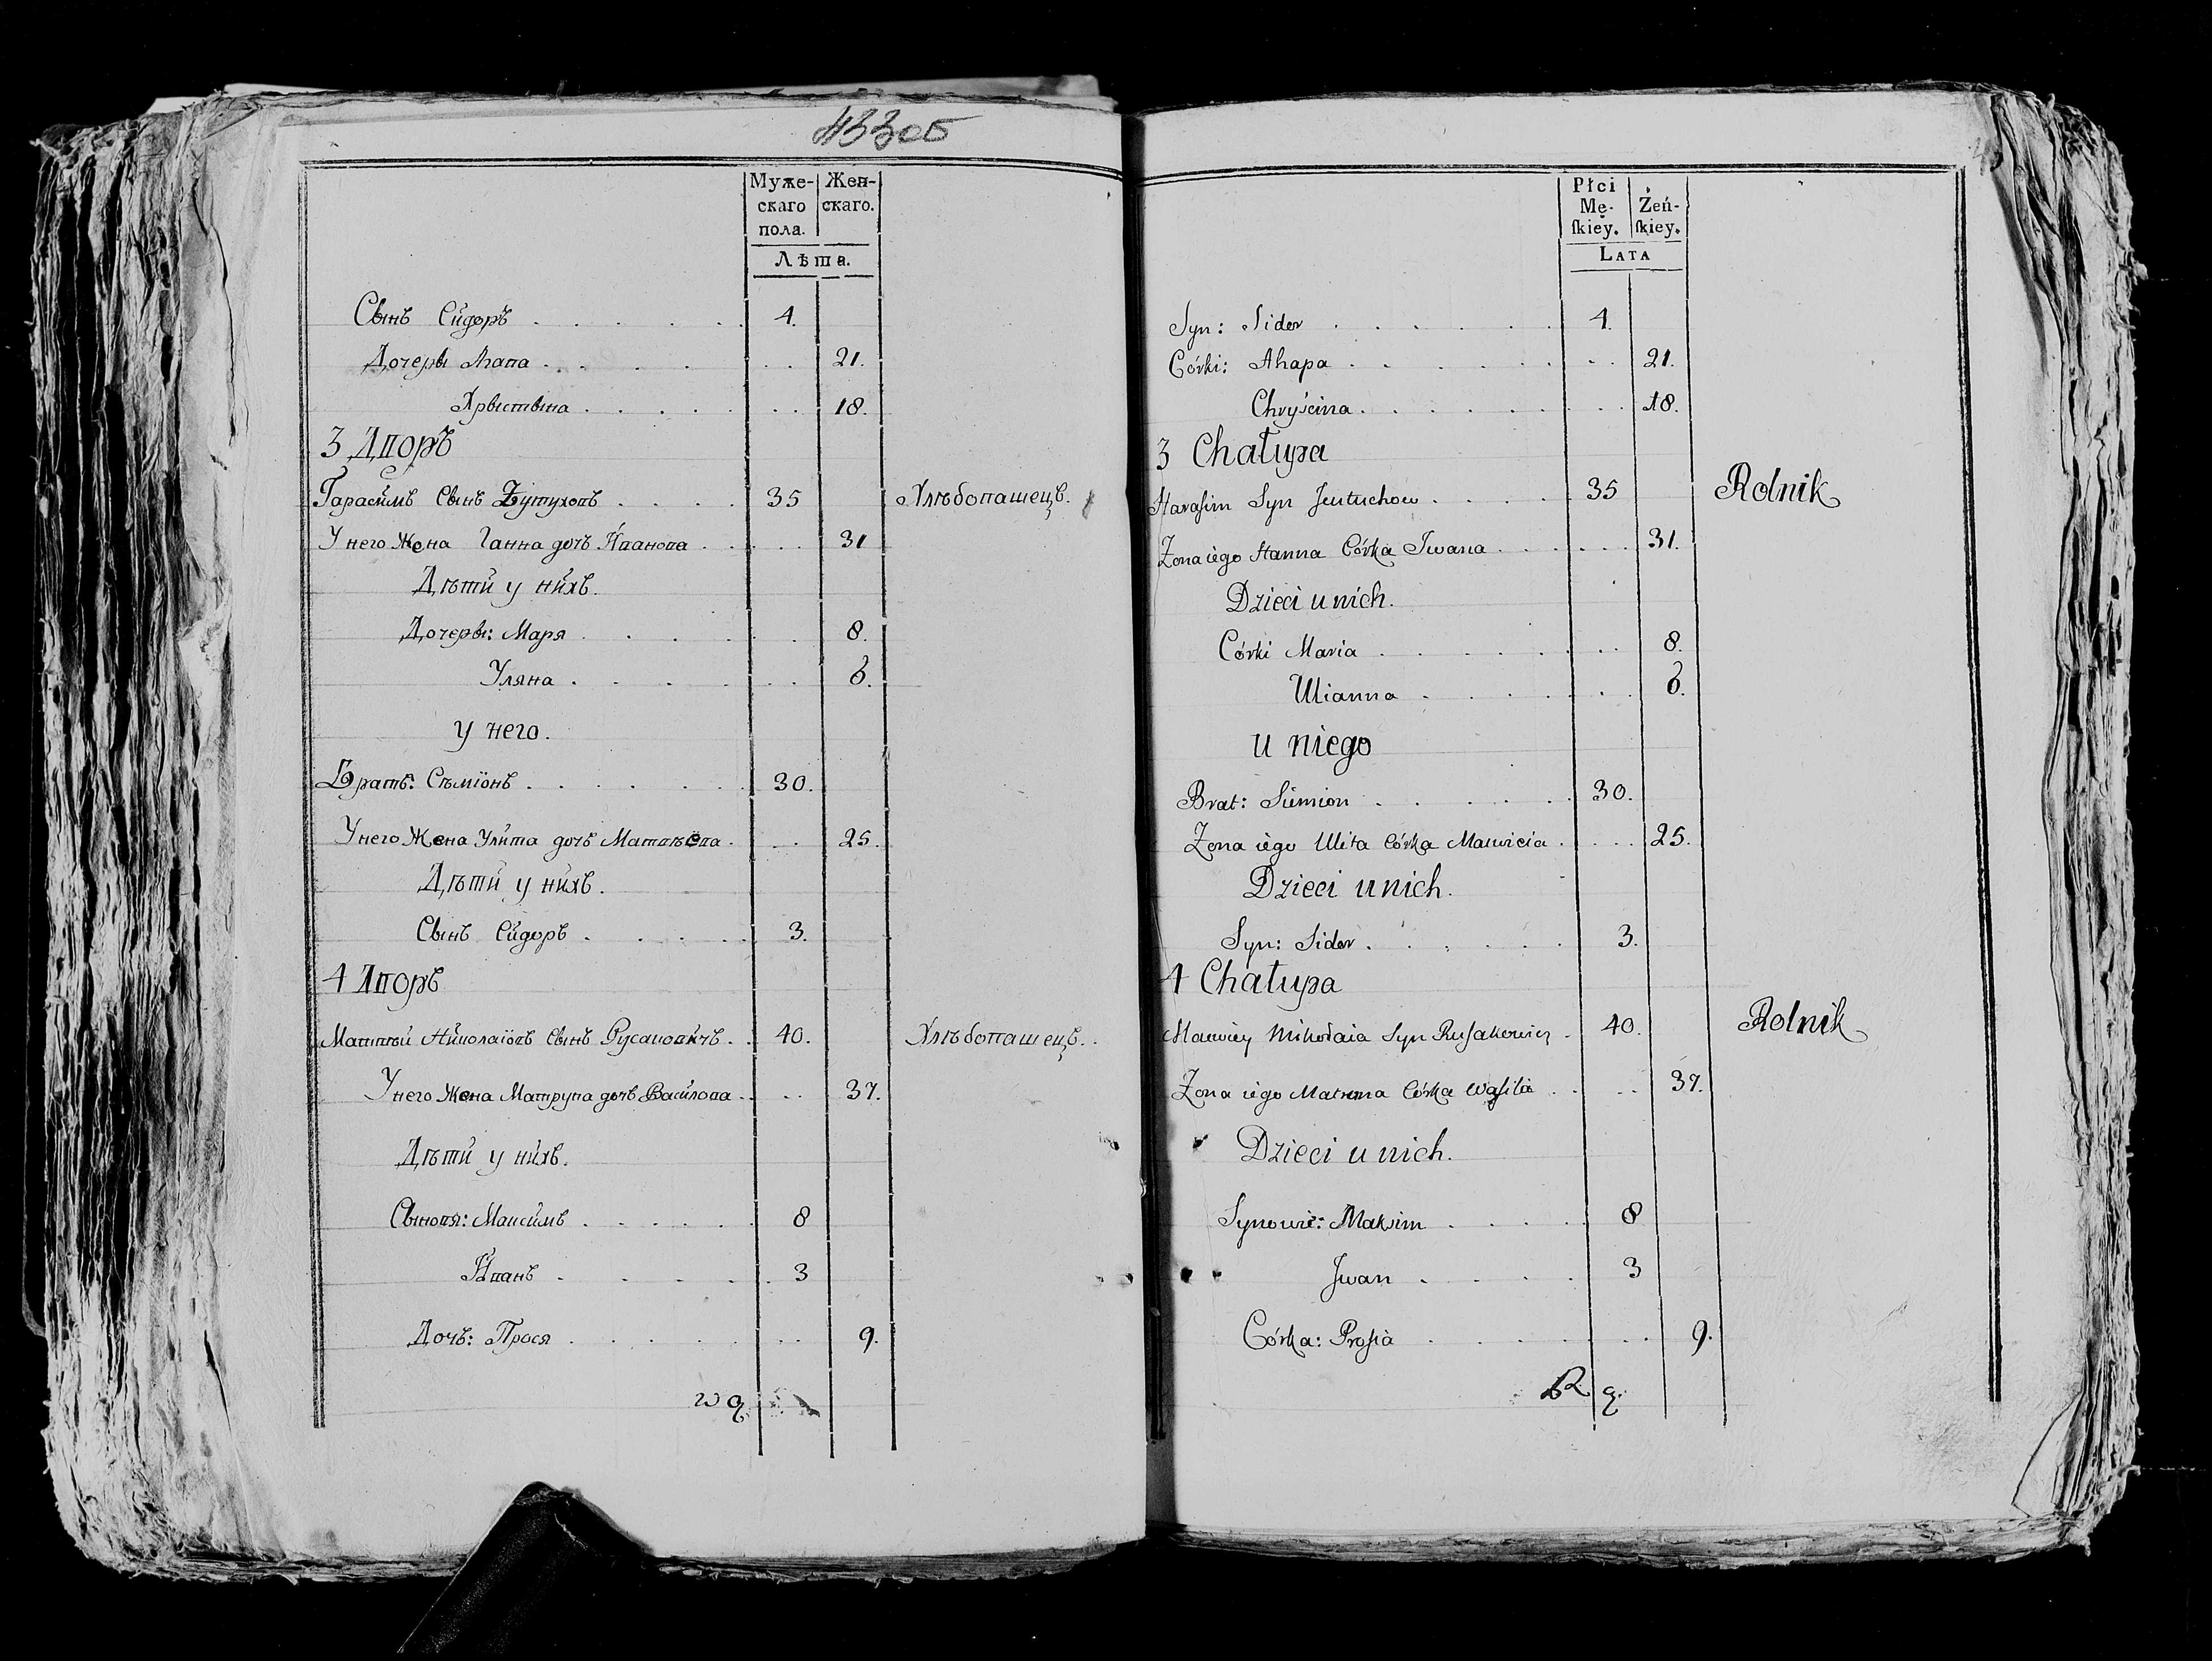 433об
Муже- Жен-
скаго скаго.
пола.
Лѣта.
Сынъ Сидоръ 4.
Дочеры Агапа 21.
Хрыстына 18.
3 Дворъ
Гарасимъ Сынъ 35 Хлѣбопашецъ.
У него Жена Ганна дочъ Иванова 31
Дѣти у нихъ.
Дочеры: Маря 8.
Уляна 6.
У него.
Братъ: Сѣміонъ 30.
У него Жена Улита дочъ Матвѣева 25.
Дѣти у нихъ.
Сынъ Сидоръ 3.
4 Дворъ
Матвѣй Николаіовъ Сынъ Русаковичъ 40. Хлѣбопашецъ.
У него Жена Матруна дочъ Василова 37.
Дѣти у нихъ.
Сыновя: Максимъ 8
Иванъ 3
Дочъ: Прося 9.
Płci
Mę- Żeń-
ſkiey. ſkiey.
LATA
Syn: Sidor 4.
Córki: Ahapa 21.
Chryścina 18.
3 Chałupa
Haraſim Syn Jeutuchow 35 Rolnik
Zona iego Hanna Córka Iwana 31.
Dzieci u nich.
Córki Maria 8.
Ulianna 6.
u niego
Brat: Siemion 30.
Zona iego Ulita Córka Mauwieia 25.
Dzieci u nich.
Syn: Sidor 3.
4 Chałupa
Mauwiey Mikołaia Syn Ruſakowicz 40. Rolnik
Zona iego Matruna Córka Waſila 37.
Dzieci u nich.
Synowie: Maksim 8
Iwan 3
Córka: Proſia 9.